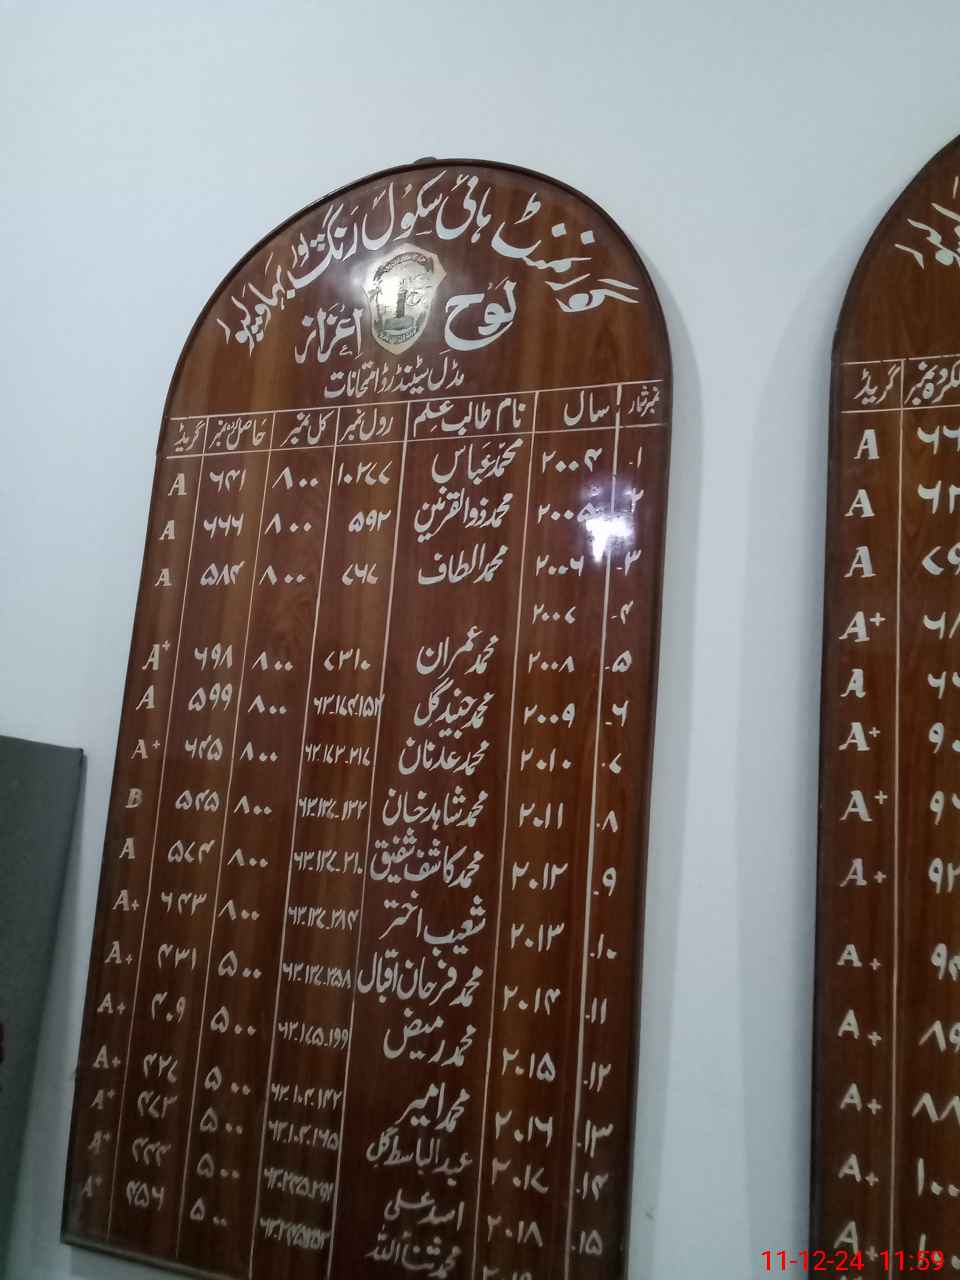 گورنمنٹ ہائی سکول رنگ پور بہاولپور
لوح اعزاز
مڈل سٹینڈرڈ امتحانات
نمبر شمار سال نام طالب علم رول نمبر کل نمبر حاصل کردہ نمبر گریڈ
۱۔ ۲۰۰۴ محمد عباس ۱۰۲۷۷ ۸۰۰ ۶۴۱ A
۲۔ ۲۰۰۵ محمد ذوالقرنین ۵۹۲ ۸۰۰ ۶۶۶ A
۳۔ ۲۰۰۶ محمد الطاف ۷۶۷ ۸۰۰ ۵۸۴ A
۴۔ ۲۰۰۷
۵۔ ۲۰۰۸ محمد عمران ۷۳۱۰ ۸۰۰ ۶۹۸ A+
۶۔ ۲۰۰۹ محمد جنید گل ۶۳۔۱۷۴۔۱۵۲ ۸۰۰ ۵۹۹ A
۷۔ ۲۰۱۰ محمد عدنان ۶۲۔۱۷۲۔۲۱۷ ۸۰۰ ۶۴۵ A+
۸۔ ۲۰۱۱ محمد شاہد خان ۶۳۔۱۳۷۔۱۳۲ ۸۰۰ ۵۴۵ B
۹۔ ۲۰۱۲ محمد کاشف شفیق ۶۳۔۱۳۷۔۲۱۰ ۸۰۰ ۵۷۴ A
۱۰۔ ۲۰۱۳ شعیب اختر ۶۳۔۱۳۷۔۲۸۴ ۸۰۰ ۶۴۳ A+
۱۱۔ ۲۰۱۴ محمد فرحان اقبال ۶۳۔۱۳۷۔۲۵۸ ۵۰۰ ۴۳۱ A+
۱۲۔ ۲۰۱۵ محمد رمیض ۶۳۔۱۷۵۔۱۹۹ ۵۰۰ ۴۰۹ A+
۱۳۔ ۲۰۱۶ محمد امیر ۶۳۔۱۰۴۔۱۴۲ ۵۰۰ ۴۲۷ A+
۱۴۔ ۲۰۱۷ عبدالباسط گل ۶۳۔۱۰۴۔۱۶۵ ۵۰۰ ۴۷۳ A+
۱۵۔ ۲۰۱۸ اسد علی ۵۰۰ ۴۴۴ A+
محمد ثناء اللہ ۵۰۰ ۴۵۶ A+
گریڈ
A
A
A
A+
A
A+
A+
A+
A+
A+
A+
A+
A+
11-12-24 11:59